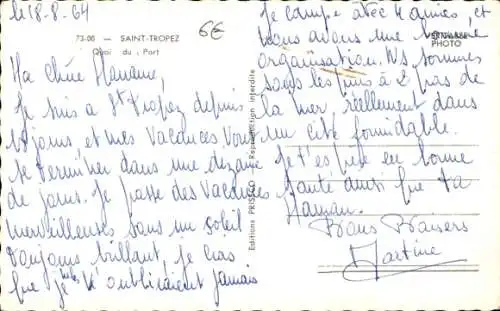 le 18-8-64
6€
73-06 — SAINT-TROPEZ
Quai du Port
Ma chère Maman,
Je suis à St Tropez depuis
jours, et mes vacances vont
se terminer dans une dizaine
de jours. Je passe des vacances
merveilleuses sous un soleil
toujours brillant, je crois
que je ne les oublierai jamais
Editions PRISCO Reproduction interdite
VÉRITABLE
PHOTO
Je campe avec 4 amies, et
nous avons une
organisation. Ns sommes
sous les pins à 2 pas de
la mer, réellement dans
un site formidable.
Je t'espère en bonne
santé ainsi que ta
Maman.
Bons Baisers
Martine